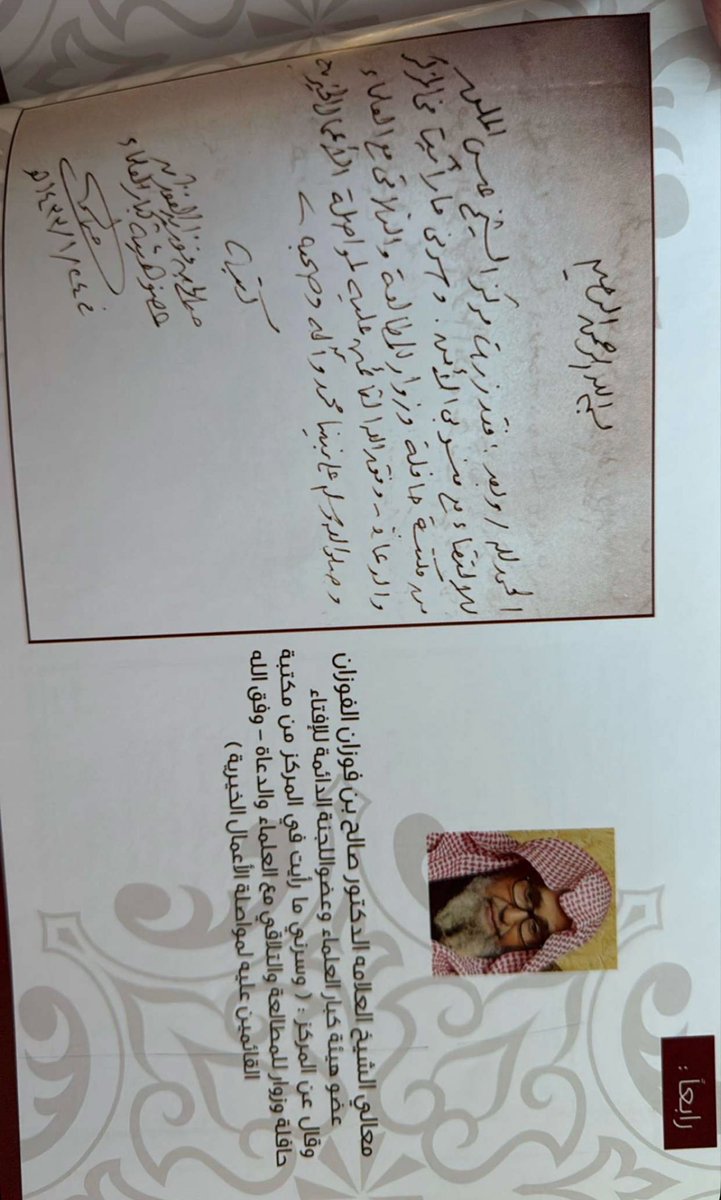 رابعاً :
معالي الشيخ العلامه الدكتور صالح بن فوزان الفوزان
عضو هيئة كبار العلماء وعضواللجنة الدائمة للإفتاء
وقال عن المركز : ( وسرني ما رأيت في المركز من مكتبة
حافلة وزوار للمطالعة والتلاقي مع العلماء والدعاة - وفق الله
القائمين عليه لمواصلة الأعمال الخيرية )
بسم الله الرحمن الرحيم
الحمد لله / وبعد : فقد زرت مركز الشيخ
للالتقاء مع منسوبي . وسرني ما رأيت في المركز
من مكتبة حافلة وزوار للمطالعة والتلاقي مع العلماء
والدعاة - وفق الله القائمين عليه لمواصلة الأعمال الخيرية
وصلى الله وسلم على نبينا محمد وآله وصحبه
كتبه
صالح بن فوزان الفوزان
عضو هيئة كبار العلماء